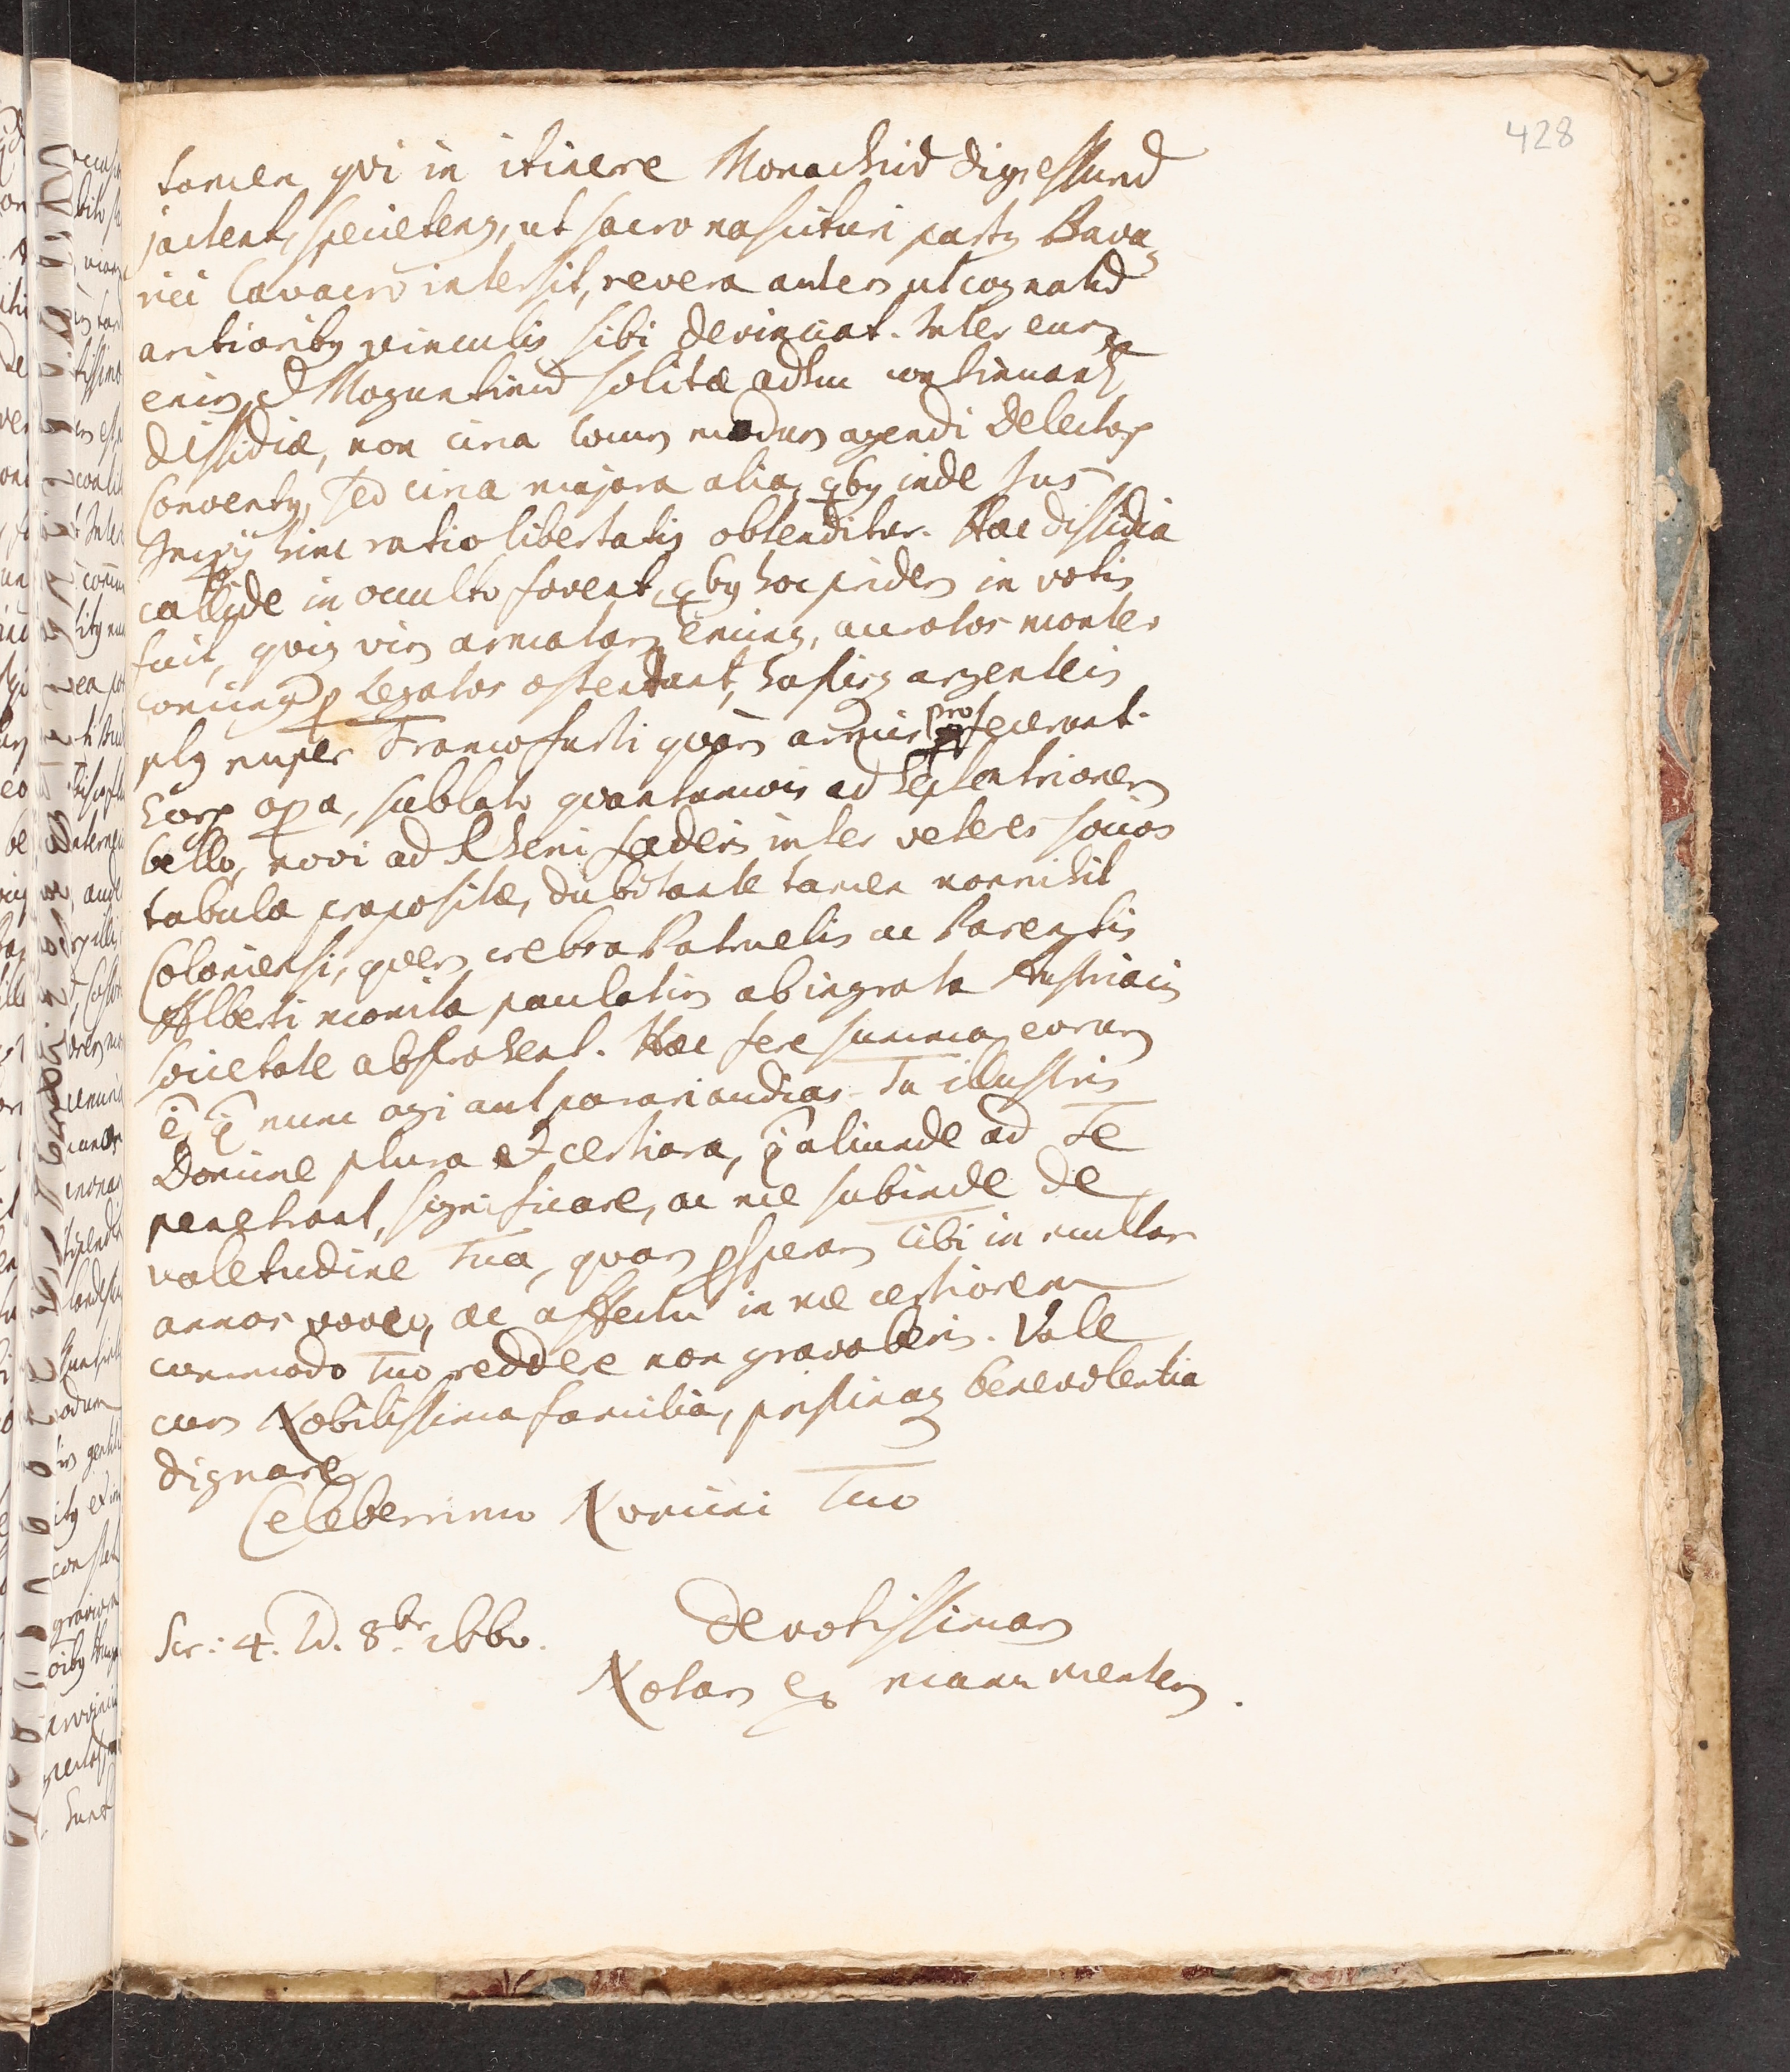 428
tamen qvi in itinere Monachiũ digressurũ
jactent, specieteng, ut sacro nascituri partꝰ Bava
rici lavacro intersit, revera autem ut cognatũ
arctioribꝰ vinculis sibi devinciat. Inter eum
enim & Moguntinũ solitæ adhuc continuant
dissidiæ, non circa locum modum agendi Delectoꝝ
Conventꝰ, sed circa majora alia, qbꝰ inde Jus
Imperij hinc ratio libertatis obtenditur. Hæc dissidia
callide in occulto fovent, qbꝰ hoc pridem in votis
fuit, qviq vim armatam eminꝰ, auratos montes
cominꝰ p Legatos ostendunt, hastisq argenteis
plꝰ nuper Francofurti qvàm armis profecerunt.
Horꝝ opa, sublato qvantumvis ad Septentrionem
bello, novi ad Rheni fœderis inter veteres socios
tabulæ propositæ, dubitante tamen nonnihil
Coloniensi, qvem crebra Patruelis ac Parentis
Alberti monita paulatim ab ingrata Austriacis
societate abstrahent. Hæc fere summa eorum
ē, q̄ nunc agi aut parari audias. Tu illustris
Domine plura et certiora, q̄ aliunde ad Te
penetrant, significare, ac me subinde de
valetudine Tua, qvam prosperam Tibi in multos
annos voveo, ac affectu in me certiorem
commodo Tuo reddere non gravaberis. Vale
cum Nobilissima familia, pristinaq benevolentia
dignare
Celeberrimo Nomini Tuo
Scr: 4. D. 8.br 1660.
devotissimam
Notam ex manu mentem.